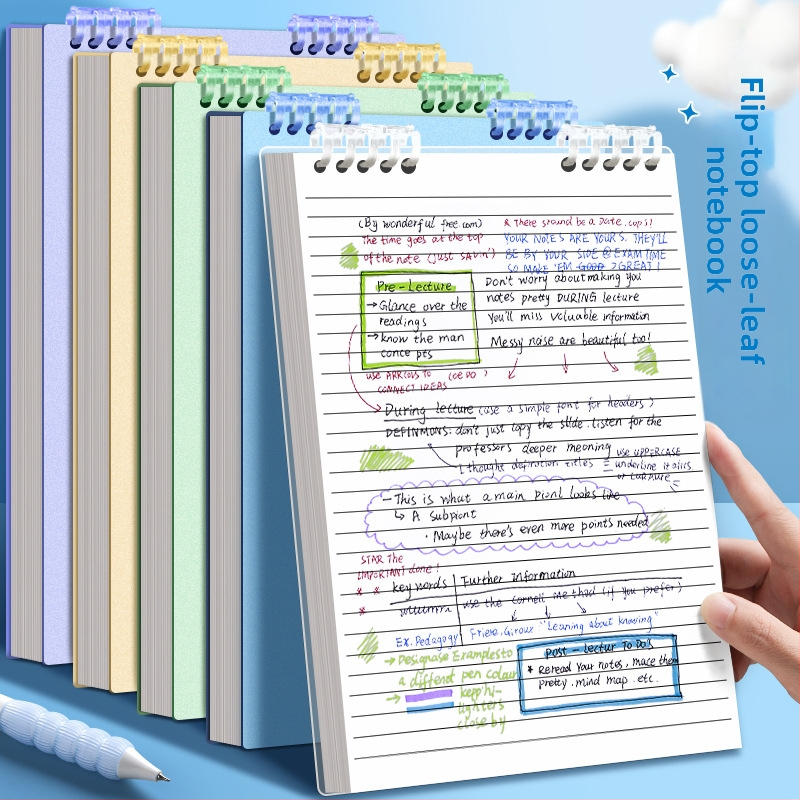 Flip-top loose-leaf
notebook
(By wonderful free.com)
& There should be a Date.
The time goes at the top
of the note (Just sayin')
YOUR NOTES ARE YOURS. THEY'LL
BE BY YOUR SIDE @ EXAM TIME
SO MAKE 'EM GOOD GREAT!
Pre-Lecture
→Glance over the
readings
→know the man
conce pts
Don't worry about making you
notes pretty DURING lecture
You'll miss valuable information
Messy noise are beautiful too!
use ARROWS TO
CONNECT IDEAS
During lecture (use a simple font for headers)
DEFINMONS: don't just copy the slide. listen for the
professors deeper meaning
use UPPERCASE
I thought definition titles
underline
- This is what a main pionl looks like
↳ A subpiont
· Maybe there's even more points needed
STAR The
IMPORTANT done!
* *
key words
Further Information
*
use the Cornell method (if you prefer)
Ex. Pedagogy
Friere, Giroux "Leaning about knowing"
→ Designase Examplesto
a differet pen colour
→ kepphi-
lighters
close by
post-lectur To Do's
* Reread Your notes, mace them
pretty. mind map. etc.